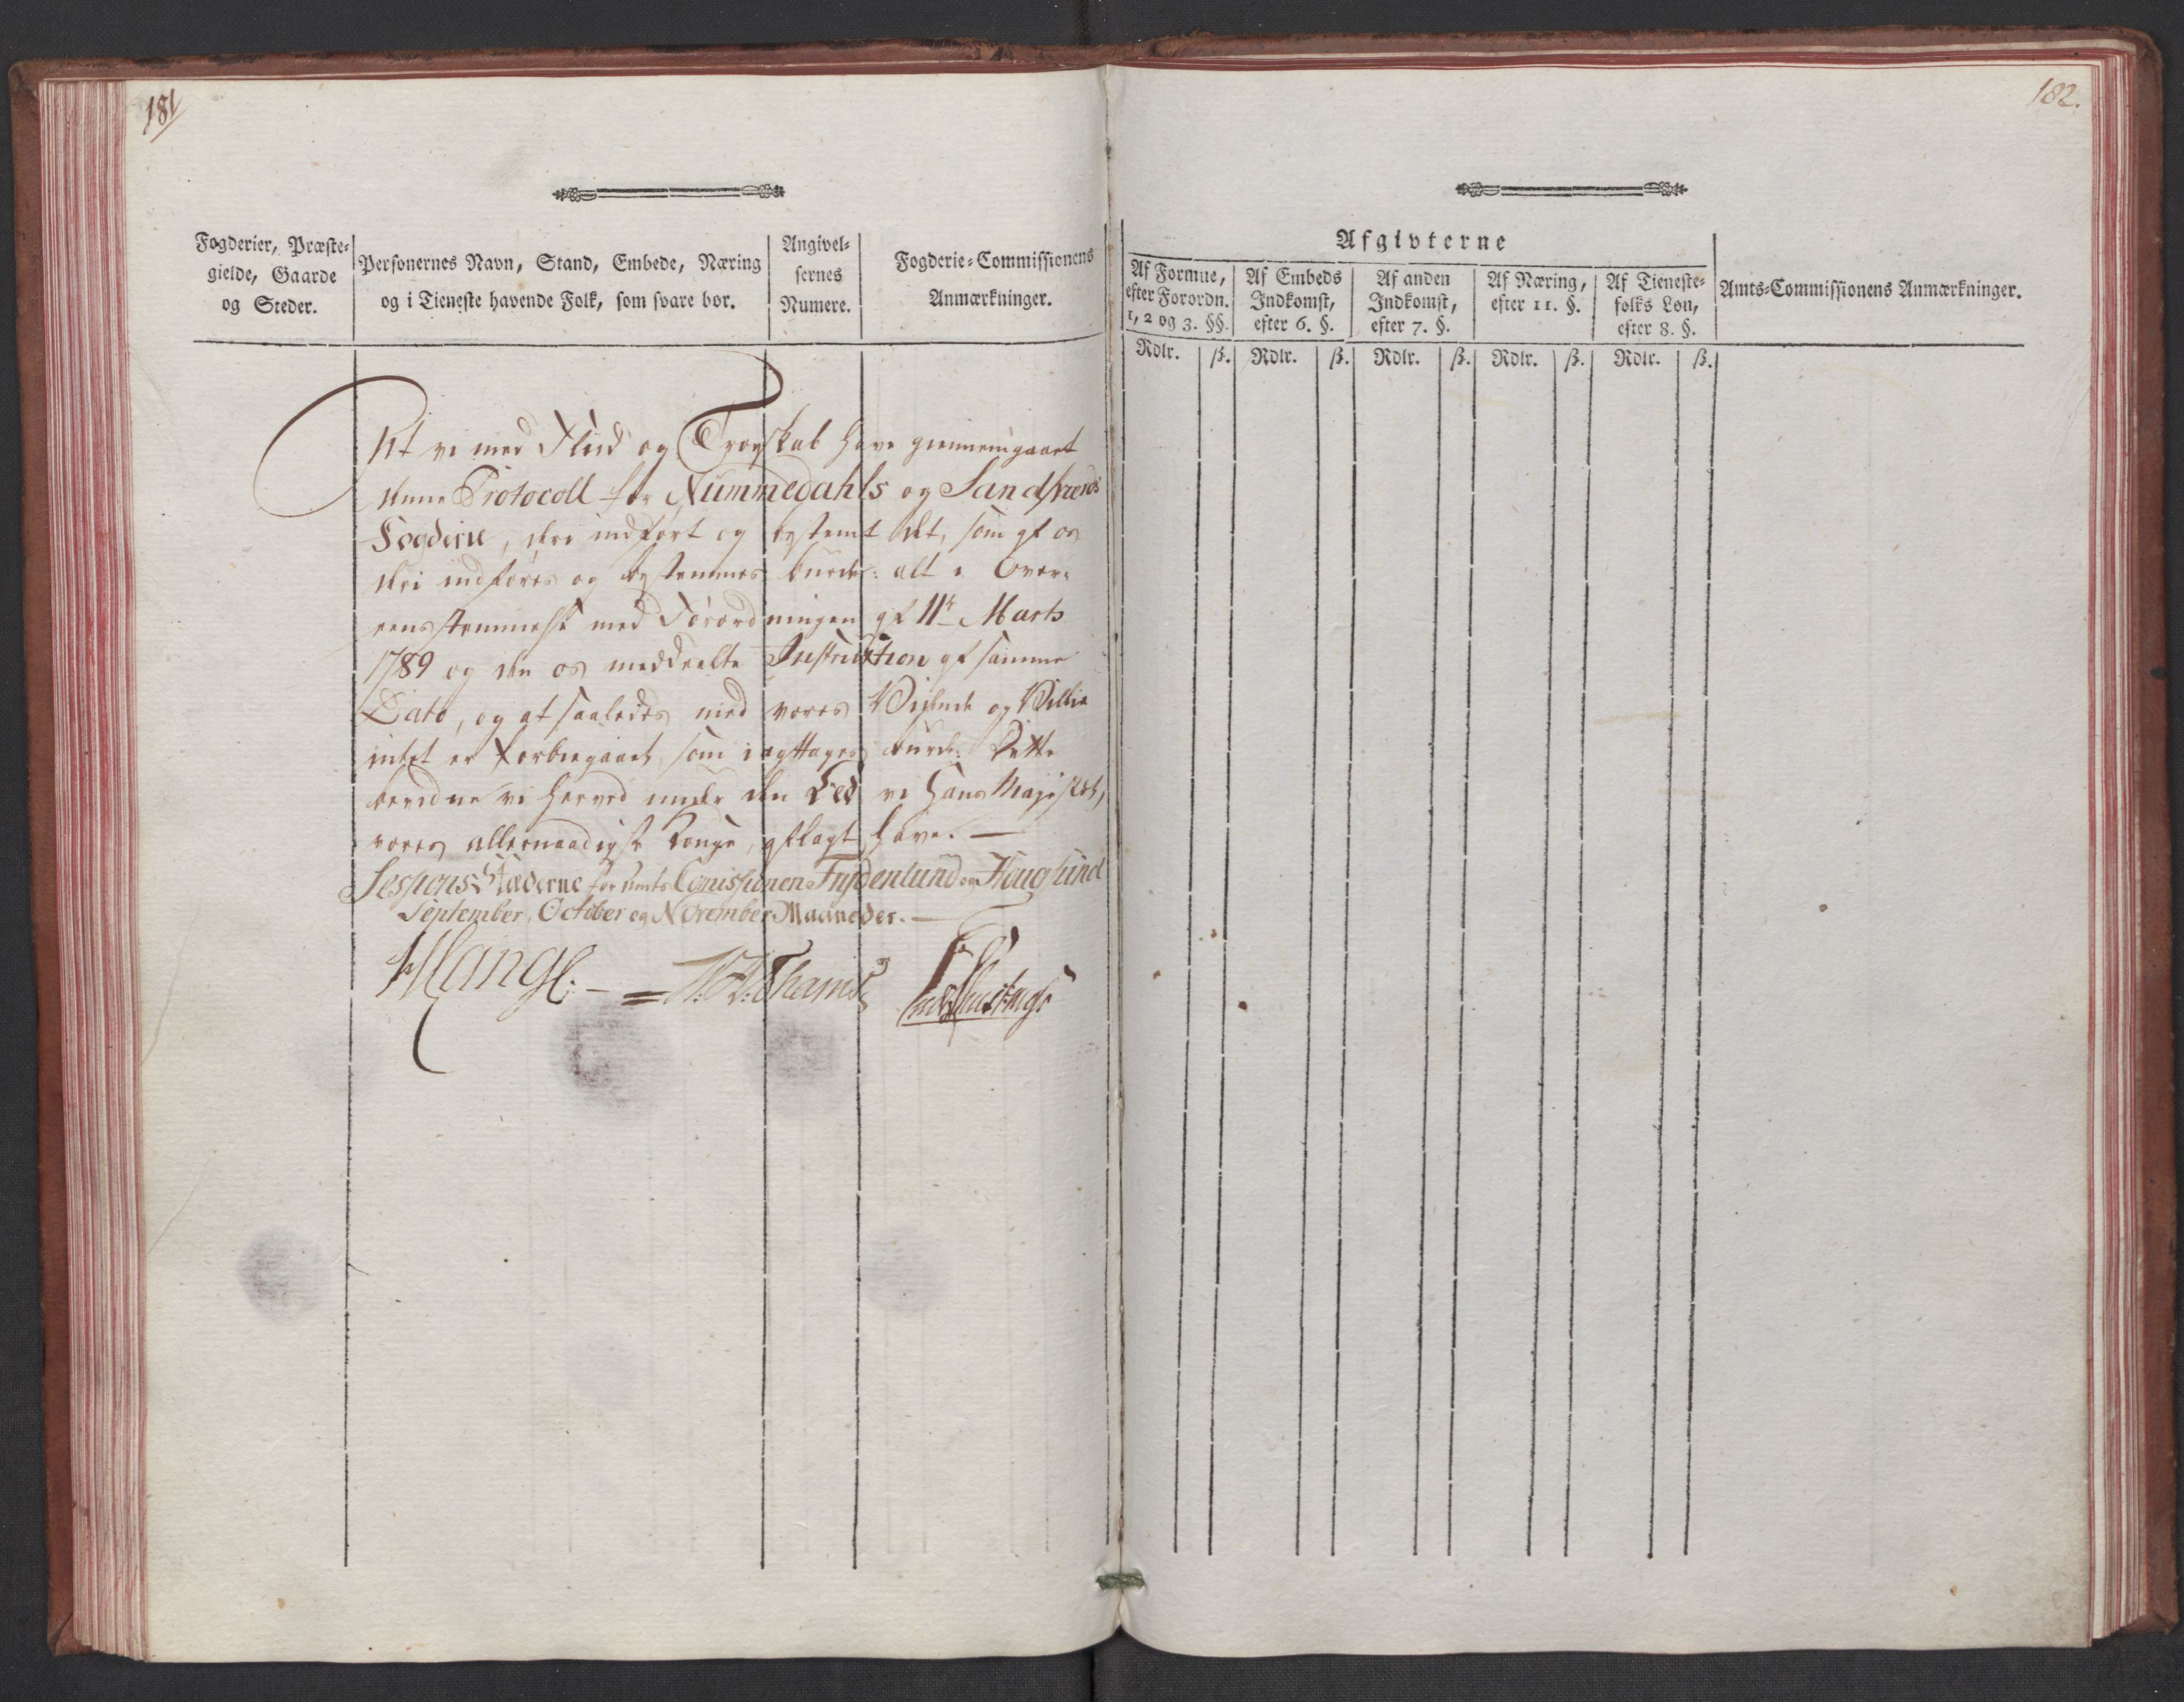 181
Fogderier, Præste-
gielde, Gaarde
og Steder.
Personernes Navn, Stand, Embede, Næring
og i Tieneste havende Folk, som svare bør.
Angivel-
sernes
Numere.
Fogderie-Commissionens
Anmærkninger.
At vi med Fliid og Troeskab have giennemgaaet
denne Protocoll for Nummedahls og Sandsværds
Fogderie, deri indført og bestemt det, som af os
deri indføres og bestemmes burde: alt i Over-
eensstemmelse med Forordningen af 11te Marts
1789 og den os meddeelte Instruction af samme
Dato, og at saaledes med vores Vidende og Villie
intet er forbiegaaet, som iagttages burde: Dette
bevidne vi herved under den Eed vi Hans Majestet,
vores allernaadigste Konge, aflagt have. —
Sessions Stæderne for Amts Comissionen Frydenlund og Houglund
September, October og November Maaneder. —
182.
Afgivterne
Af Formue,
efter Forordn.
1, 2 og 3. §§.
Af Embeds
Indkomst,
efter 6. §.
Af anden
Indkomst,
efter 7. §.
Af Næring,
efter 11. §.
Af Tieneste-
folks Løn,
efter 8. §.
Amts-Commissionens Anmærkninger.
Rdlr. ß. Rdlr. ß. Rdlr. ß. Rdlr. ß. Rdlr. ß.